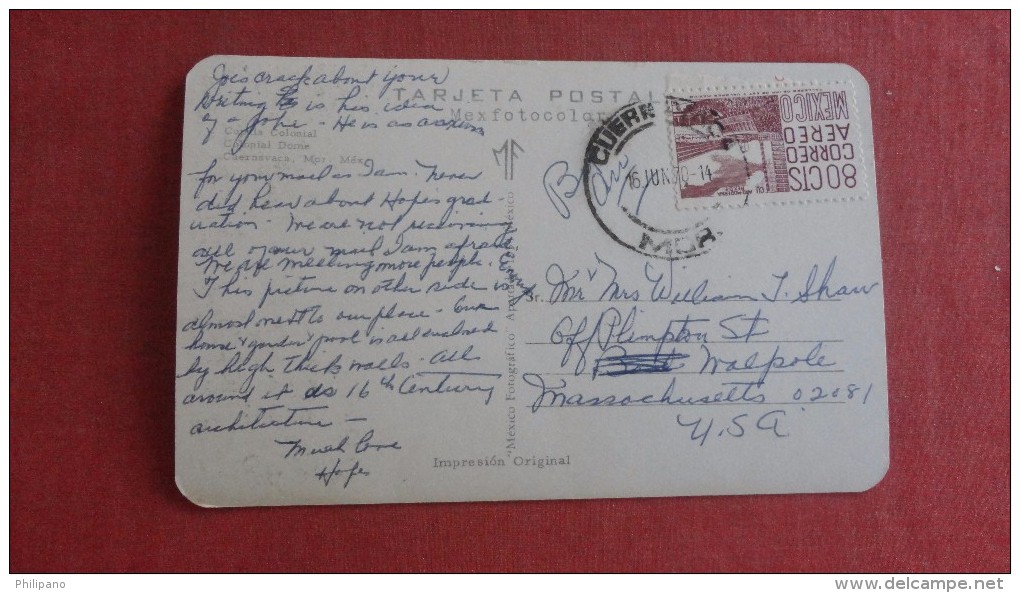 Joe's crack about your
writing is his idea
of a joke - He is as anxious
for your mail as I am. Never
did hear about Hope's grad-
uation - We are not receiving
all of our mail I am afraid.
We are meeting more people.
This picture on other side is
almost next to our place - Our
house & garden & pool is all enclosed
by high thick walls - All
around it is 16th Century
architecture -
Much love
Hope
TARJETA POSTAL
Mexfotocolor
Capilla Colonial
Colonial Dome
Cuernavaca, Mor. Méx.
"México Fotográfico" Apartado México
Impresión Original
CUERN
16 JUN 70-14
MOR.
MEXICO
AEREO
CORREO
80 CTS
Sr. Mr & Mrs William T. Shaw
Off Plimpton St
Walpole
Massachusetts 02081
U.S.A.
Philipano
http://www.delcampe.net